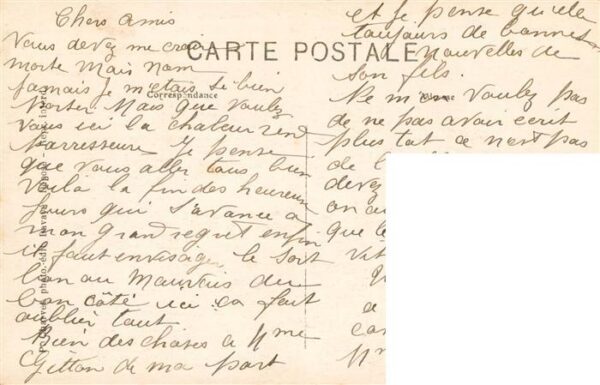 Chers amis
Vous devez me croire
morte Mais Nom
Jamais je m'etais si bien
Porter Mais que voulez
vous ici la chaleur rend
Parresseure Je pense
que vous aller tous bien
Voilà la fin des heureux
Jours qui s'avance a
mon Grand regret enfin
il faut envisager le sort
bon ou Mauvais du
bon côté ici ca fait
oublier tout
Bien des choses a Mme
Gitton de ma part
CARTE POSTALE
Correspondance
et Je pense qu'elle
toujours de bonnes
Nouvelles de
son fils.
Ne m'en voulez pas
de ne pas avoir ecrit
plus tot ce n'est pas
de
devez
on au
que le
a